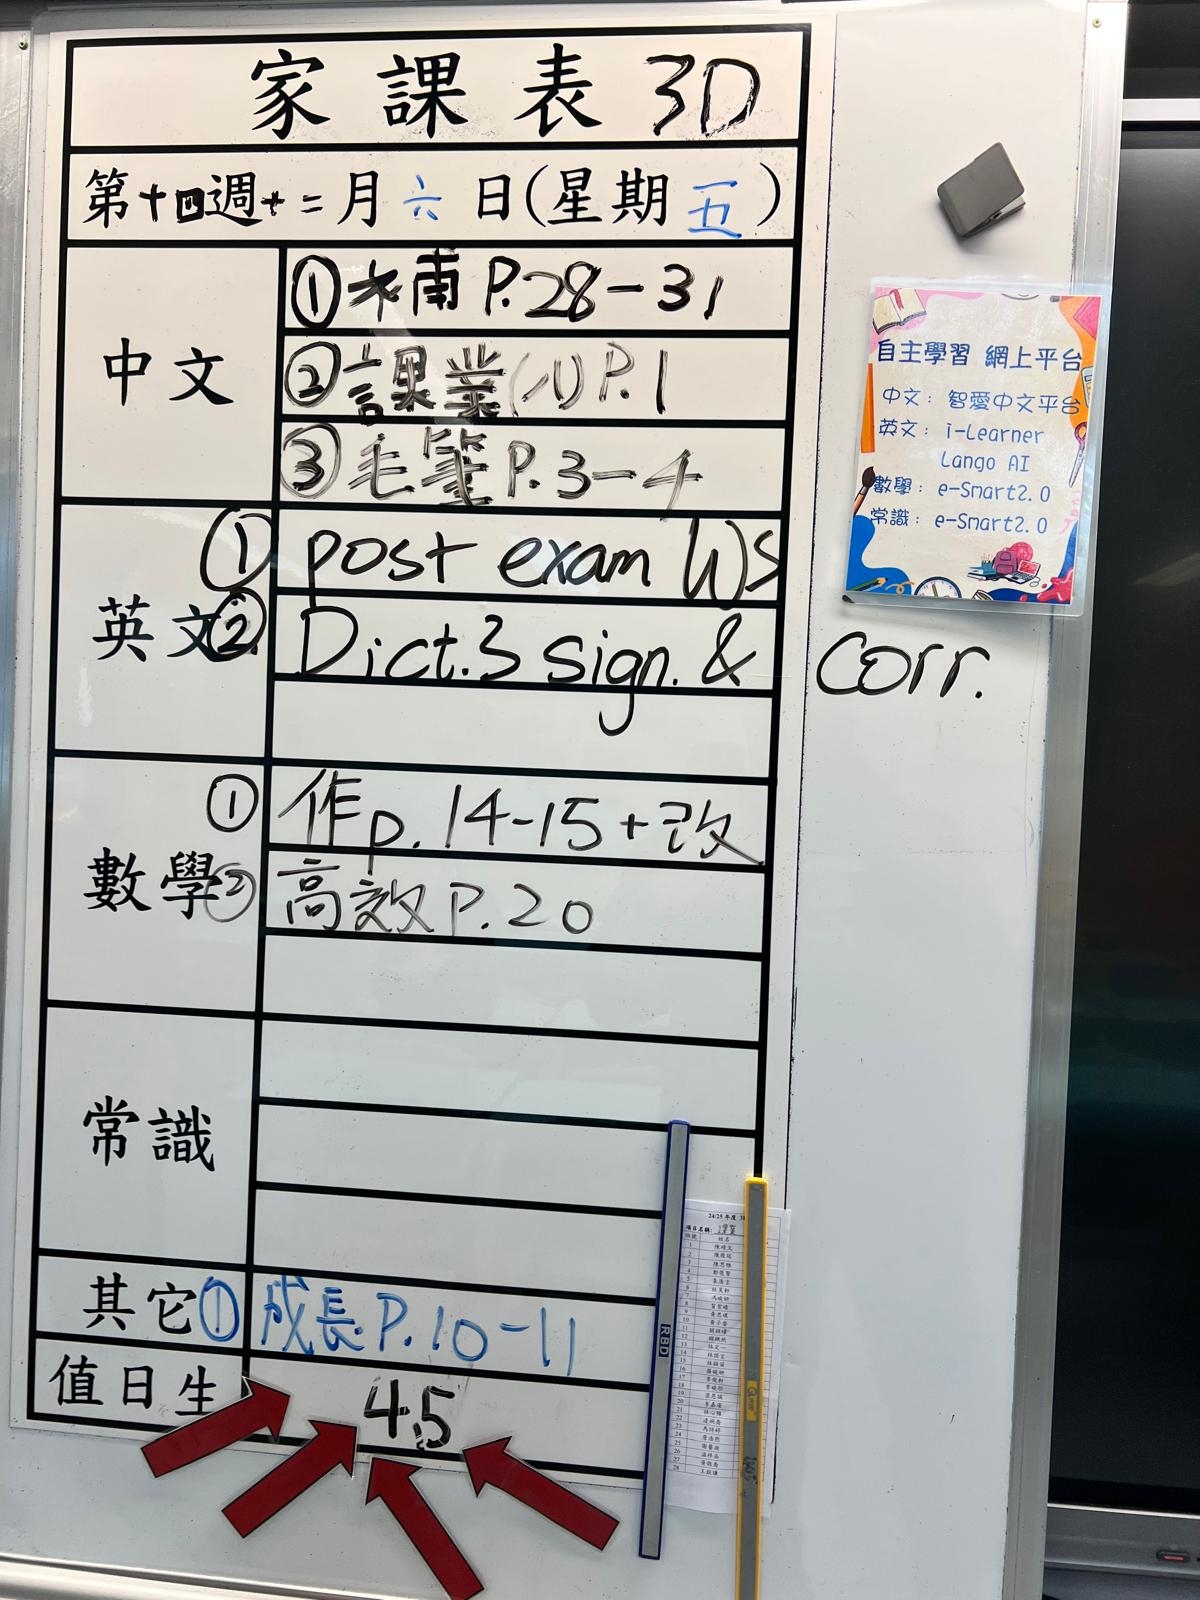 家課表 3D
第十四週十二月六日(星期五)
中文
①木南 P.28-31
②課業(八)P.1
③毛筆P.3-4
英文
① post exam WS
② Dict.3 sign. & corr.
數學
① 作p.14-15+改
② 高效P.20
常識
其它
①成長P.10-11
值日生
4,5
自主學習 網上平台
中文: 智愛中文平台
英文: i-Learner
Lango AI
數學: e-Smart2.0
常識: e-Smart2.0
RBD
24/25 年度
項目名稱:
姓名